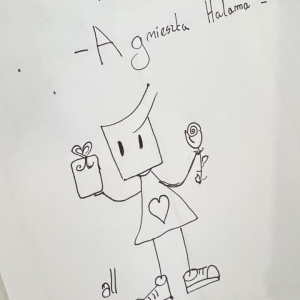 - Agnieszka Halama -
all